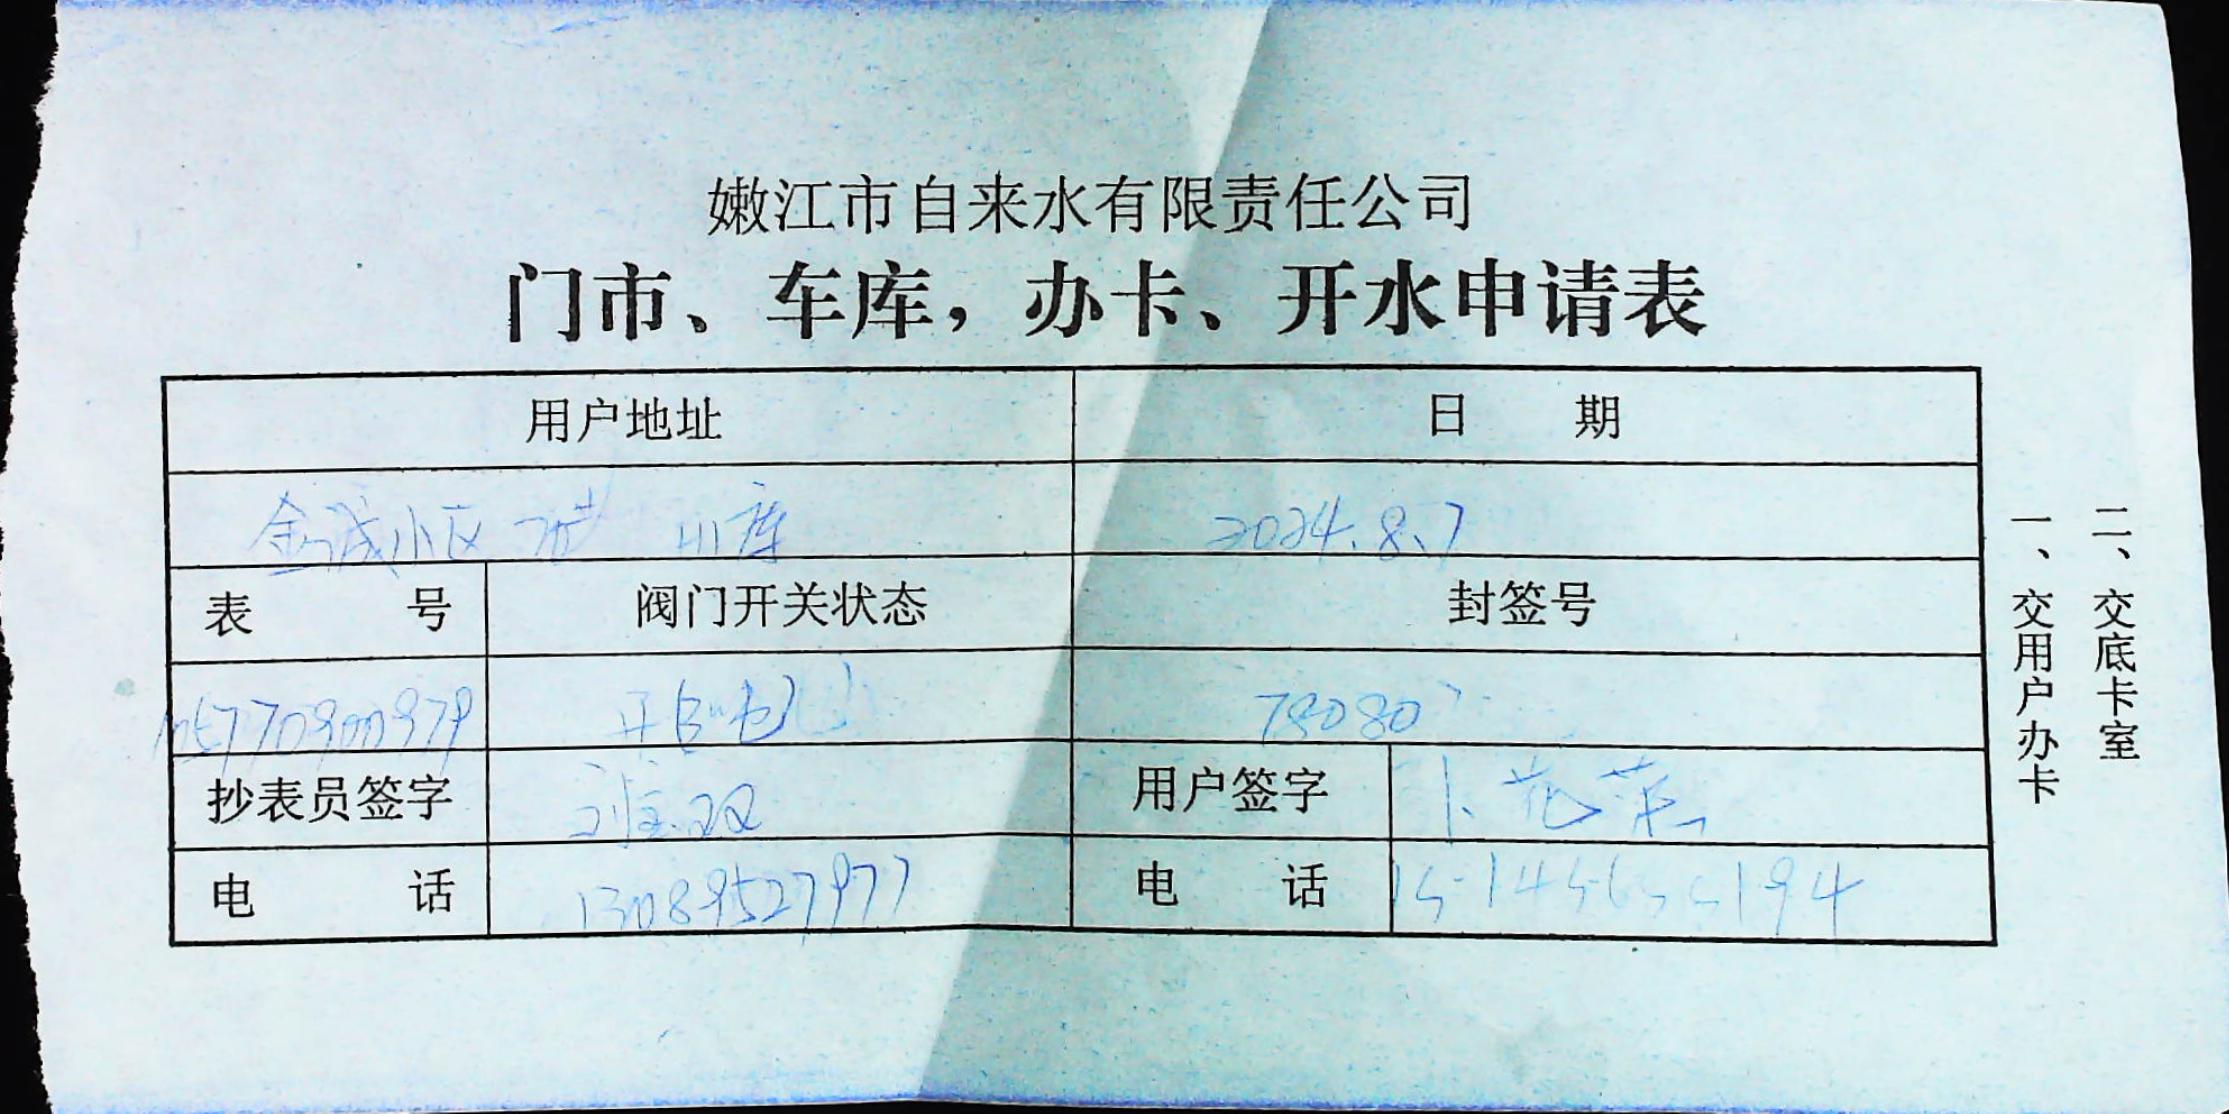 嫩江市自来水有限责任公司
门市、车库，办卡、开水申请表
用户地址 日期
金诚小区 库 2024.8.7
表号 阀门开关状态 封签号
开 78080
抄表员签字 用户签字 卜花荣
电话 13089527977 电话
一、交用户办卡
二、交底卡室